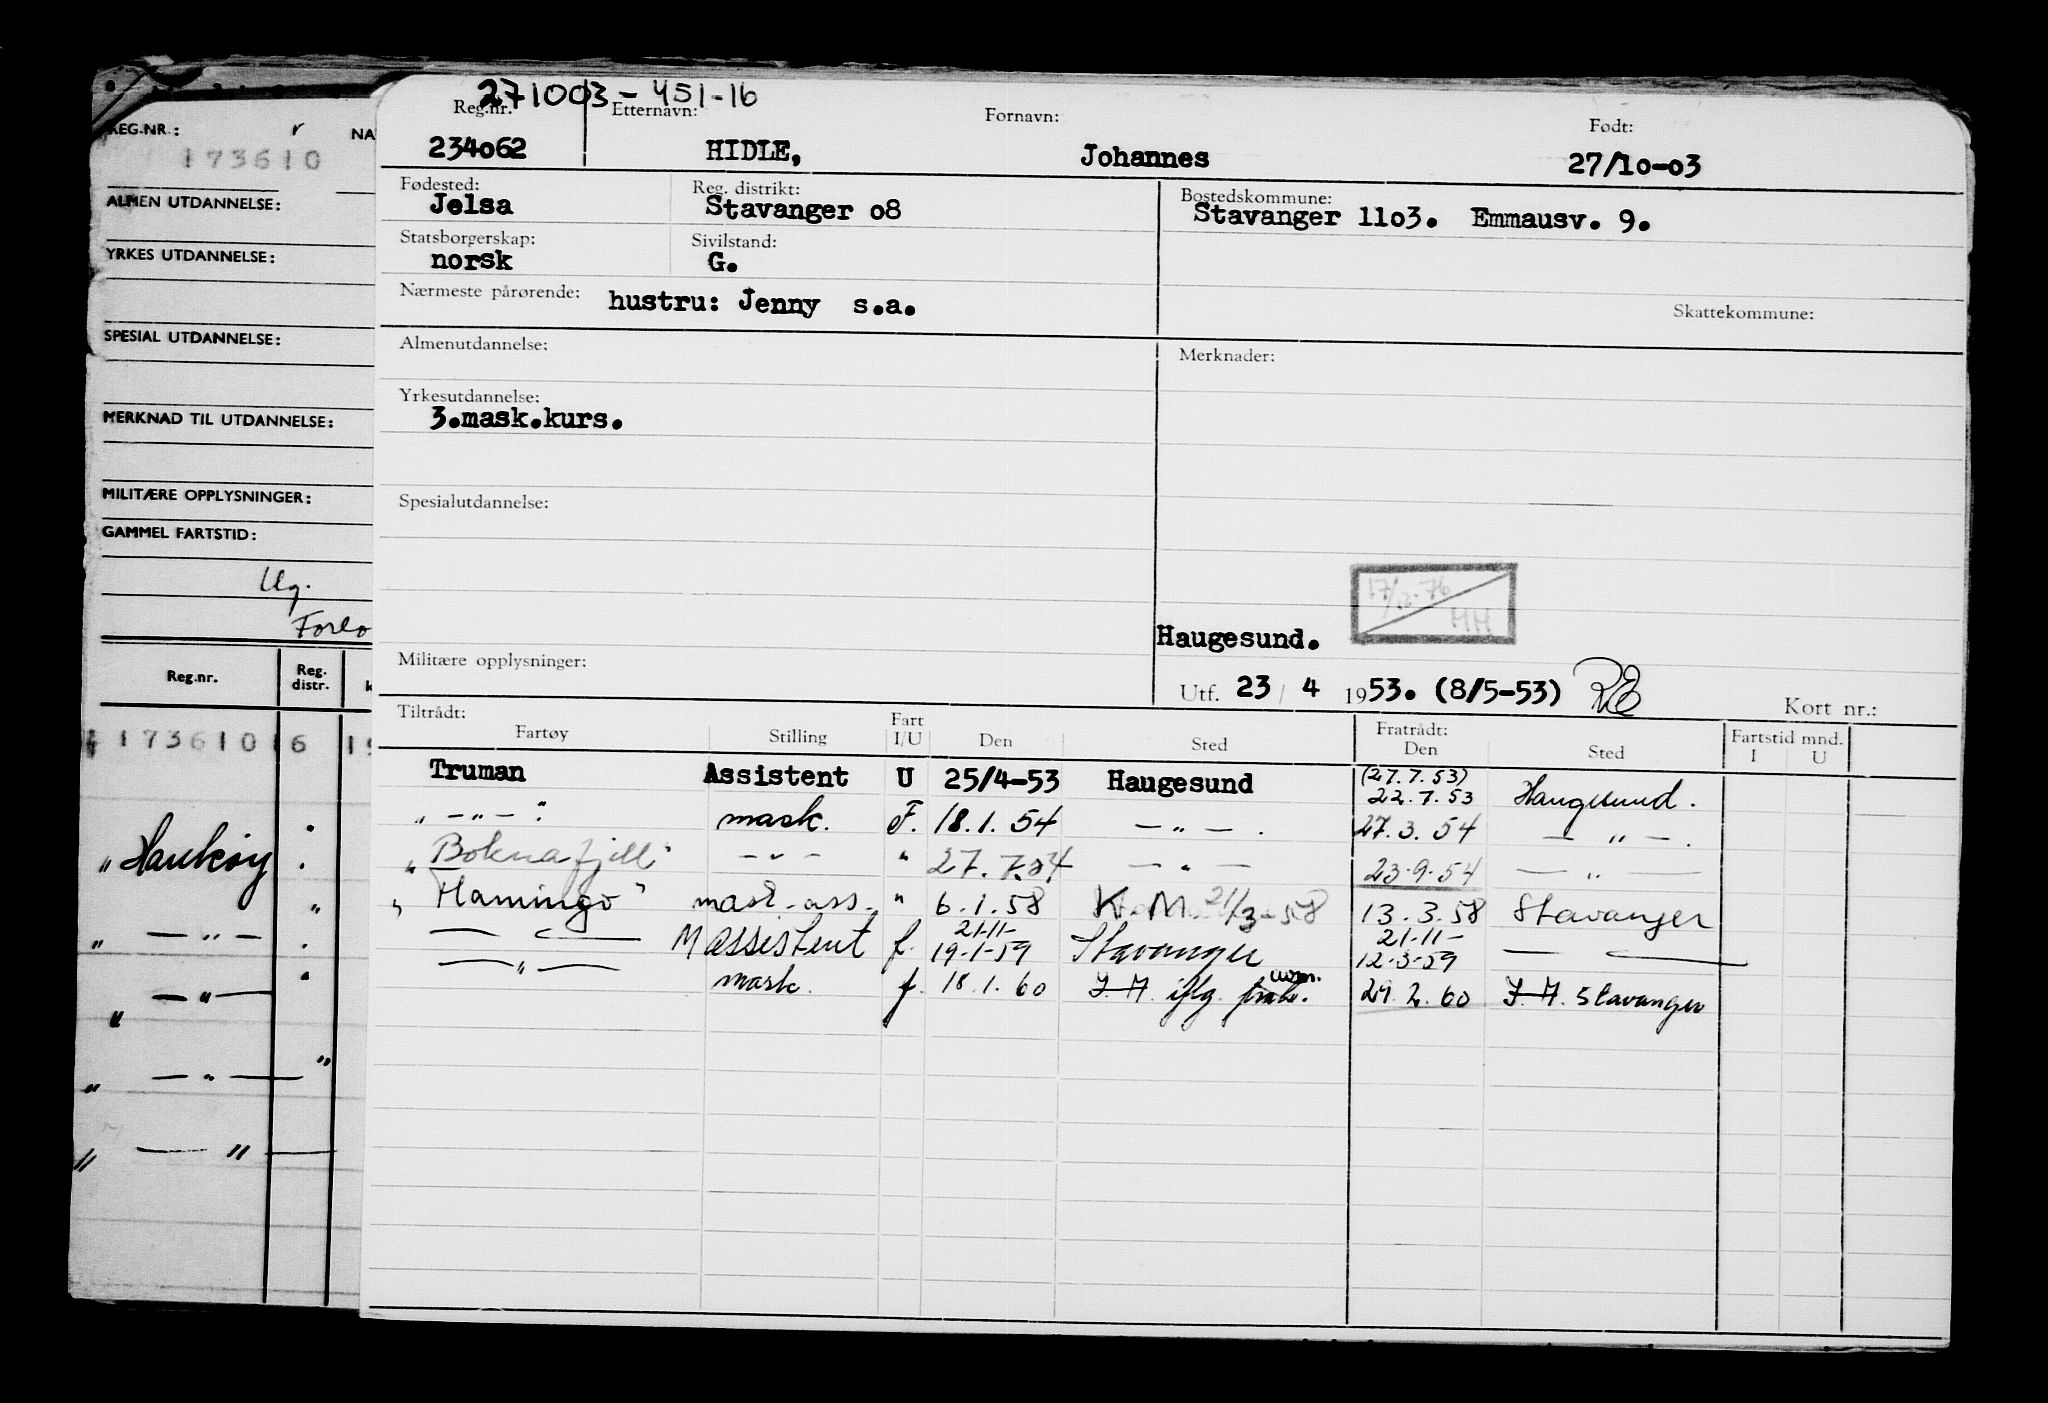 REG.NR.:
NA
173610
ALMEN UTDANNELSE:
YRKES UTDANNELSE:
SPESIAL UTDANNELSE:
MERKNAD TIL UTDANNELSE:
MILITÆRE OPPLYSNINGER:
GAMMEL FARTSTID:
Forlo
Reg.nr. Reg. distr. k
173610 6 19
"Haukøy
" — " —
— " —
" — " —
" — " —
271003-451-16
Reg.nr. Etternavn: Fornavn: Født:
234062 HIDLE, Johannes 27/10-03
Fødested: Reg. distrikt: Bostedskommune:
Jelsa Stavanger 08 Stavanger 1103. Emmausv. 9.
Statsborgerskap: Sivilstand:
norsk G.
Nærmeste pårørende: hustru: Jenny s.a.
Skattekommune:
Almenutdannelse: Merknader:
Yrkesutdannelse:
3.mask.kurs.
Spesialutdannelse:
17/12-76
HH
Haugesund.
Militære opplysninger:
Utf. 23 / 4 1953. (8/5-53) Kort nr.:
Tiltrådt: Fart Fratrådt: Fartstid mnd.
Fartøy Stilling I/U Den Sted Den Sted I U
Truman Assistent U 25/4-53 Haugesund (27.7.53) 22.7.53 Haugesund.
" — " — " mask. F. 18.1.54 — " — . 27.3.54 — " — .
"Boknafjell" — " — " 27.7.54 — " — 23.9.54 — " —
"Flamingo" mask-ass. " 6.1.58 K.M. 21/3-58 13.3.58 Stavanger
— " — M assistent f. 21.11- 19.1-59 Stavanger 21.11- 12.3-59 — " —
— " — mask. f. 18.1.60 J.M. iflg. 29.2.60 J.M. Stavanger